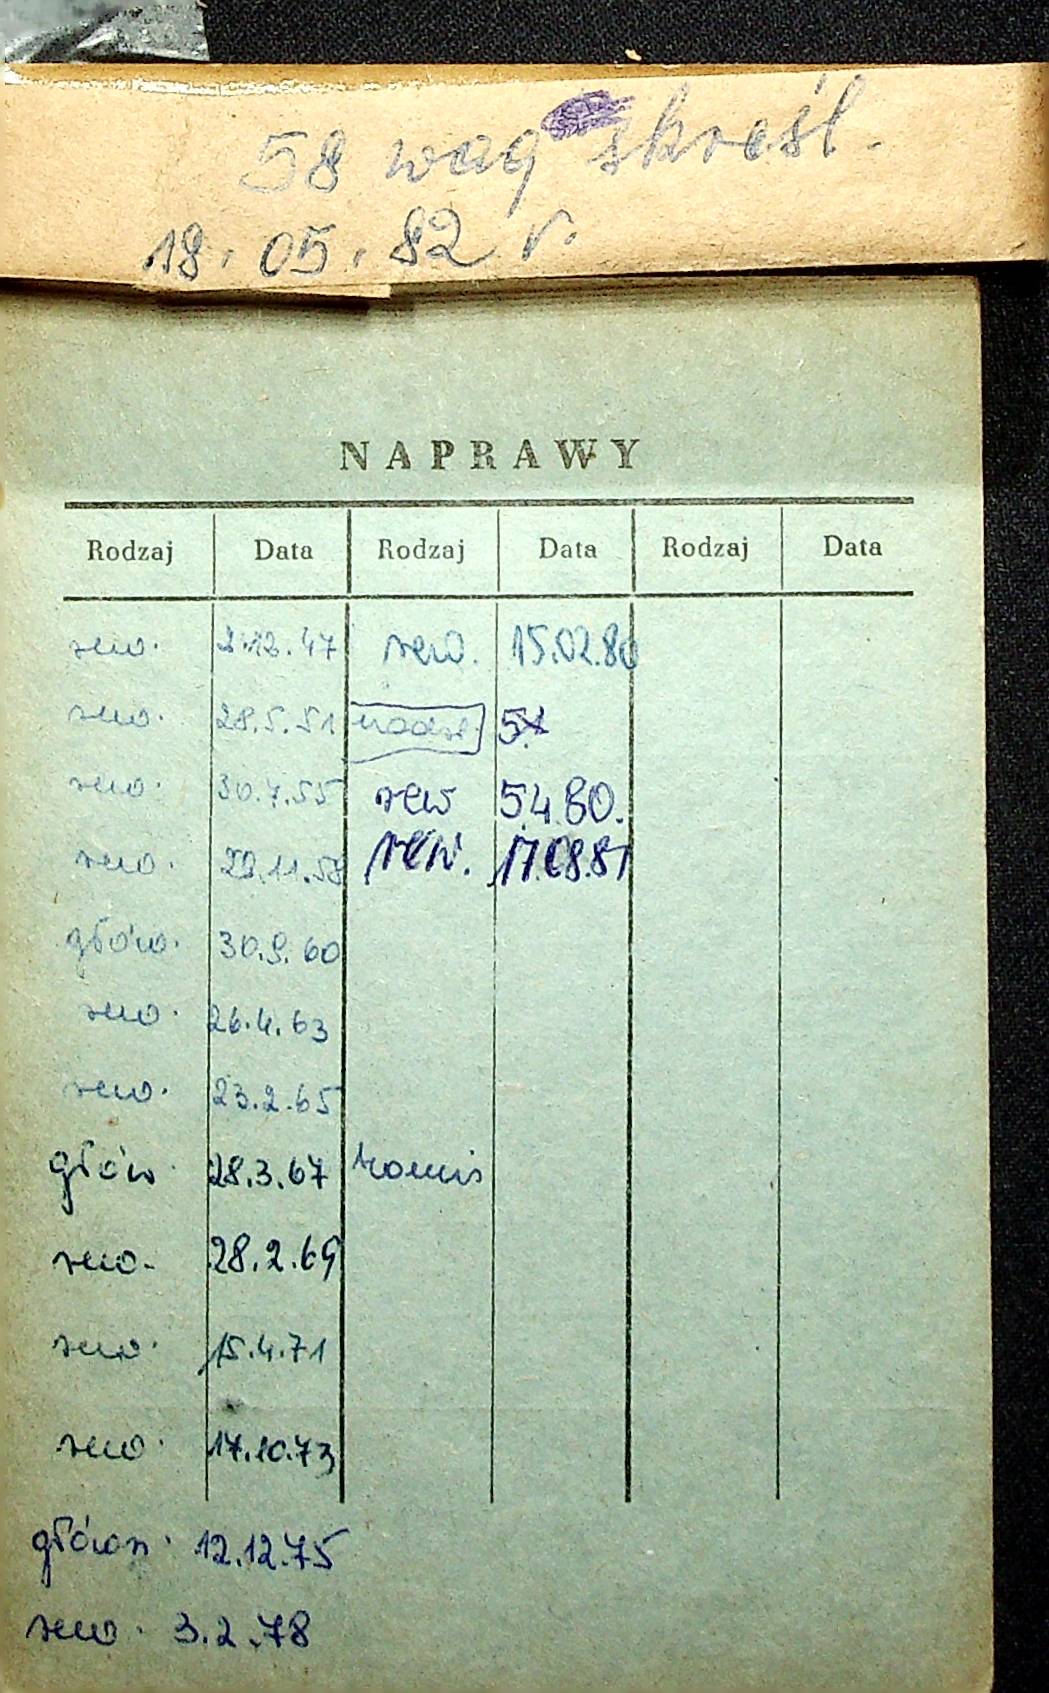 58 wag skreśl.
18.05.82 r.
NAPRAWY
Rodzaj Data Rodzaj Data Rodzaj Data
rew. 2.12.47 rew. 15.02.80
rew. 28.5.51 51
rew. 30.7.55 rew 5.4.80.
rew. 29.11.58 rew. 17.08.81
głów. 30.9.60
rew. 26.4.63
rew. 23.2.65
głów. 28.3.67
rew. 28.2.69
rew. 15.4.71
rew. 17.10.73
główn. 12.12.75
rew. 3.2.78